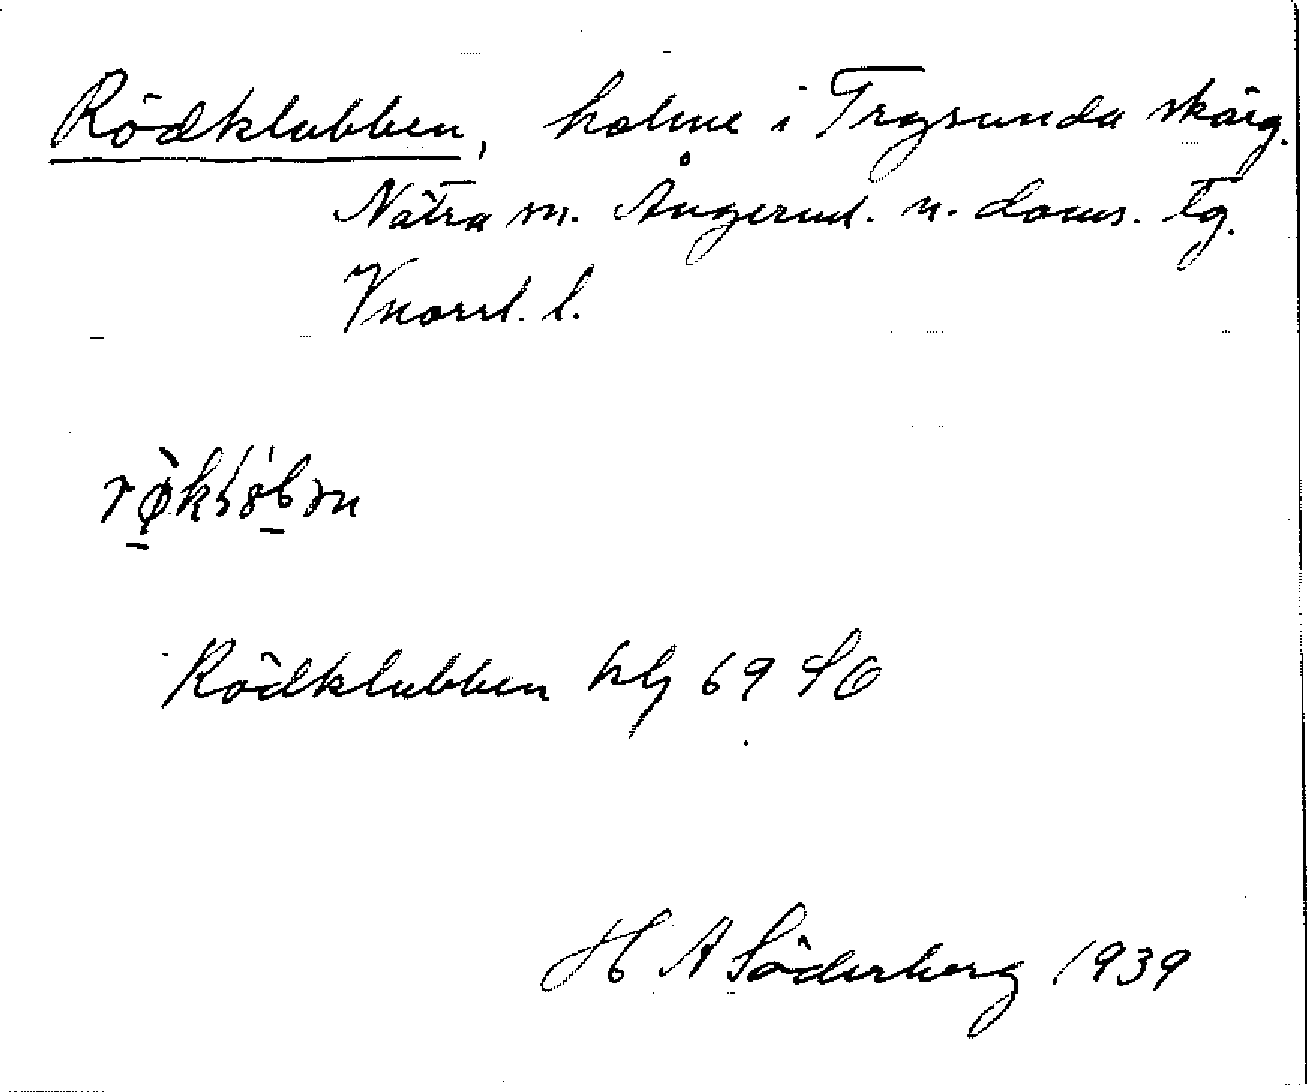 Rödklubben, holme i Trysunda skärg.
Nätra sn. Ångerml. n. doms. tg.
Vnorrl. l.
Rödklubben hlg 69 SO
H A Söderberg 1939